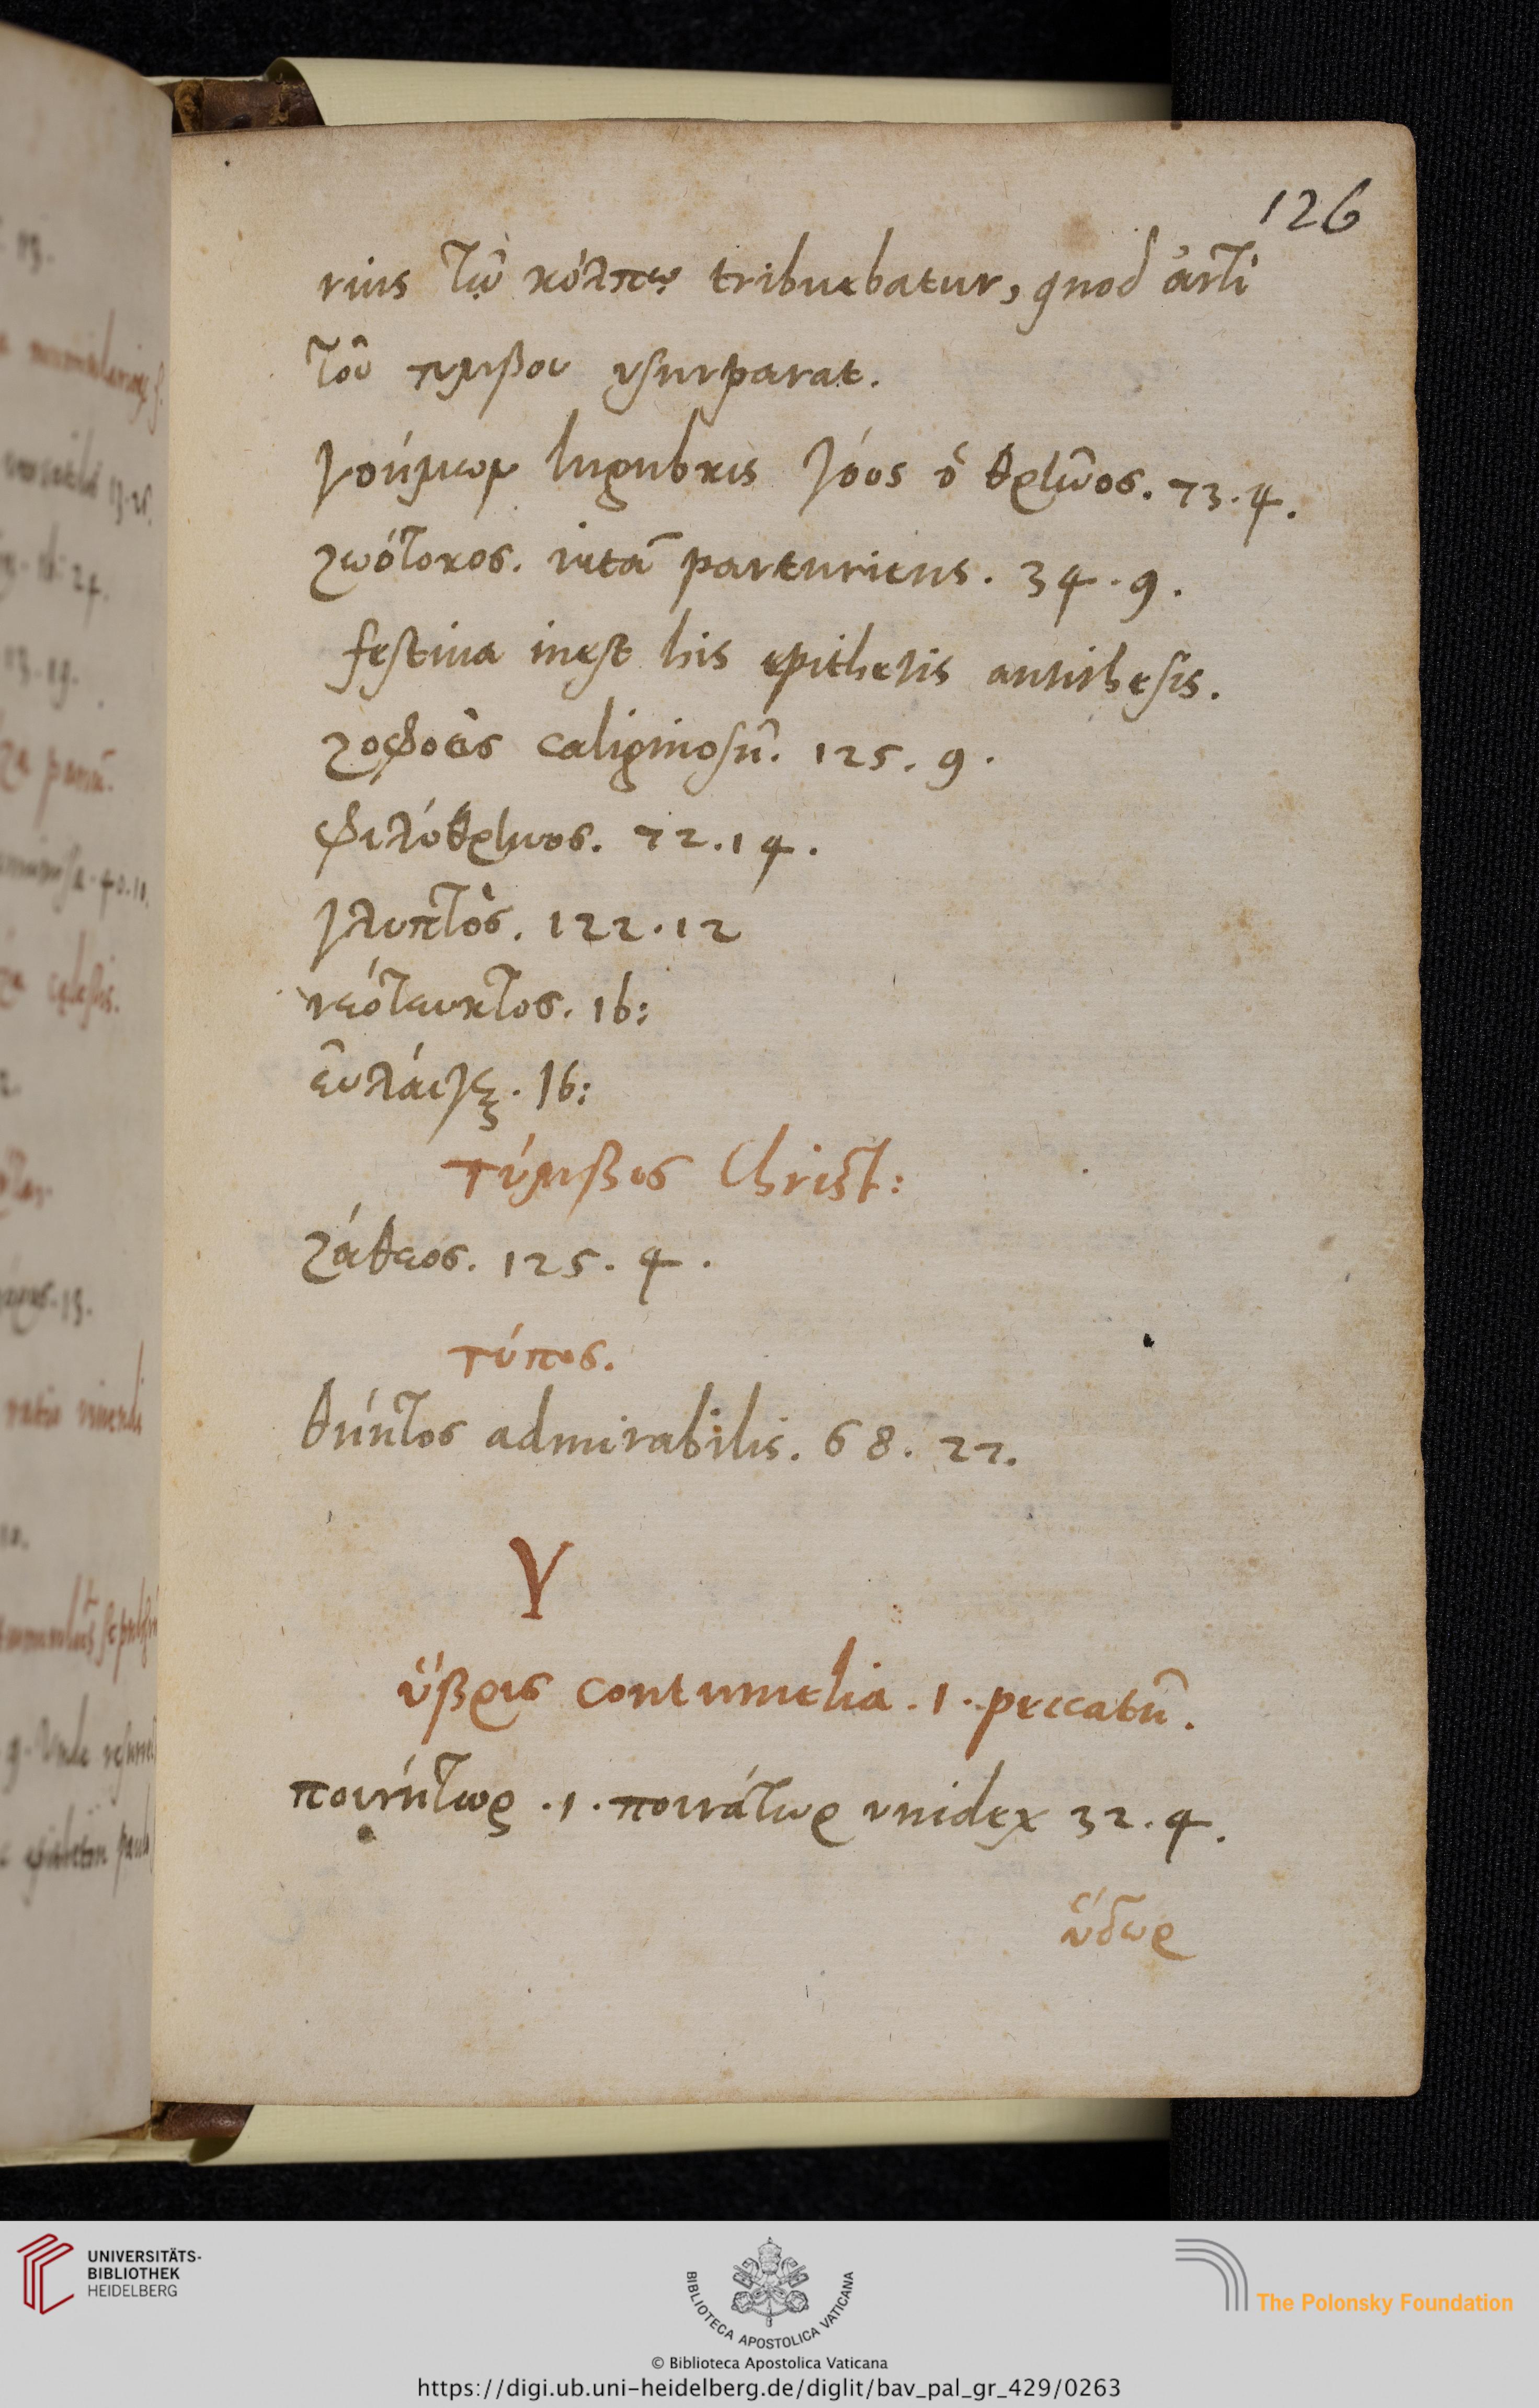 126
rius τῷ κόλπῳ tribuebatur, quod ἀντὶ
τοῦ τυμβου vsurparat.
γοήμων lugubris γόος ὁ θρῆνος. 73. 4.
ζωότοκος. uitā parturiens. 34. 9.
festiua inest his epithetis antithesis.
ζοφοὲις caliginosū. 125. 9.
φιλόθρηνος. 72. 14.
γλυπτὸς. 122. 12
νεότευκτος. ib:
ἐυλάιγξ. ib:
τύμβος Christ:
ζάθεος. 125. 4.
τύπος.
θηητος admirabilis. 68. 22.
Υ
ὕβρις contumelia .i. peccatū.
ποινήτωρ .i. ποινάτωρ uindex 32. 4.
ὕδωρ
UNIVERSITÄTS-
BIBLIOTHEK
HEIDELBERG
BIBLIOTECA APOSTOLICA VATICANA
© Biblioteca Apostolica Vaticana
The Polonsky Foundation
https://digi.ub.uni-heidelberg.de/diglit/bav_pal_gr_429/0263